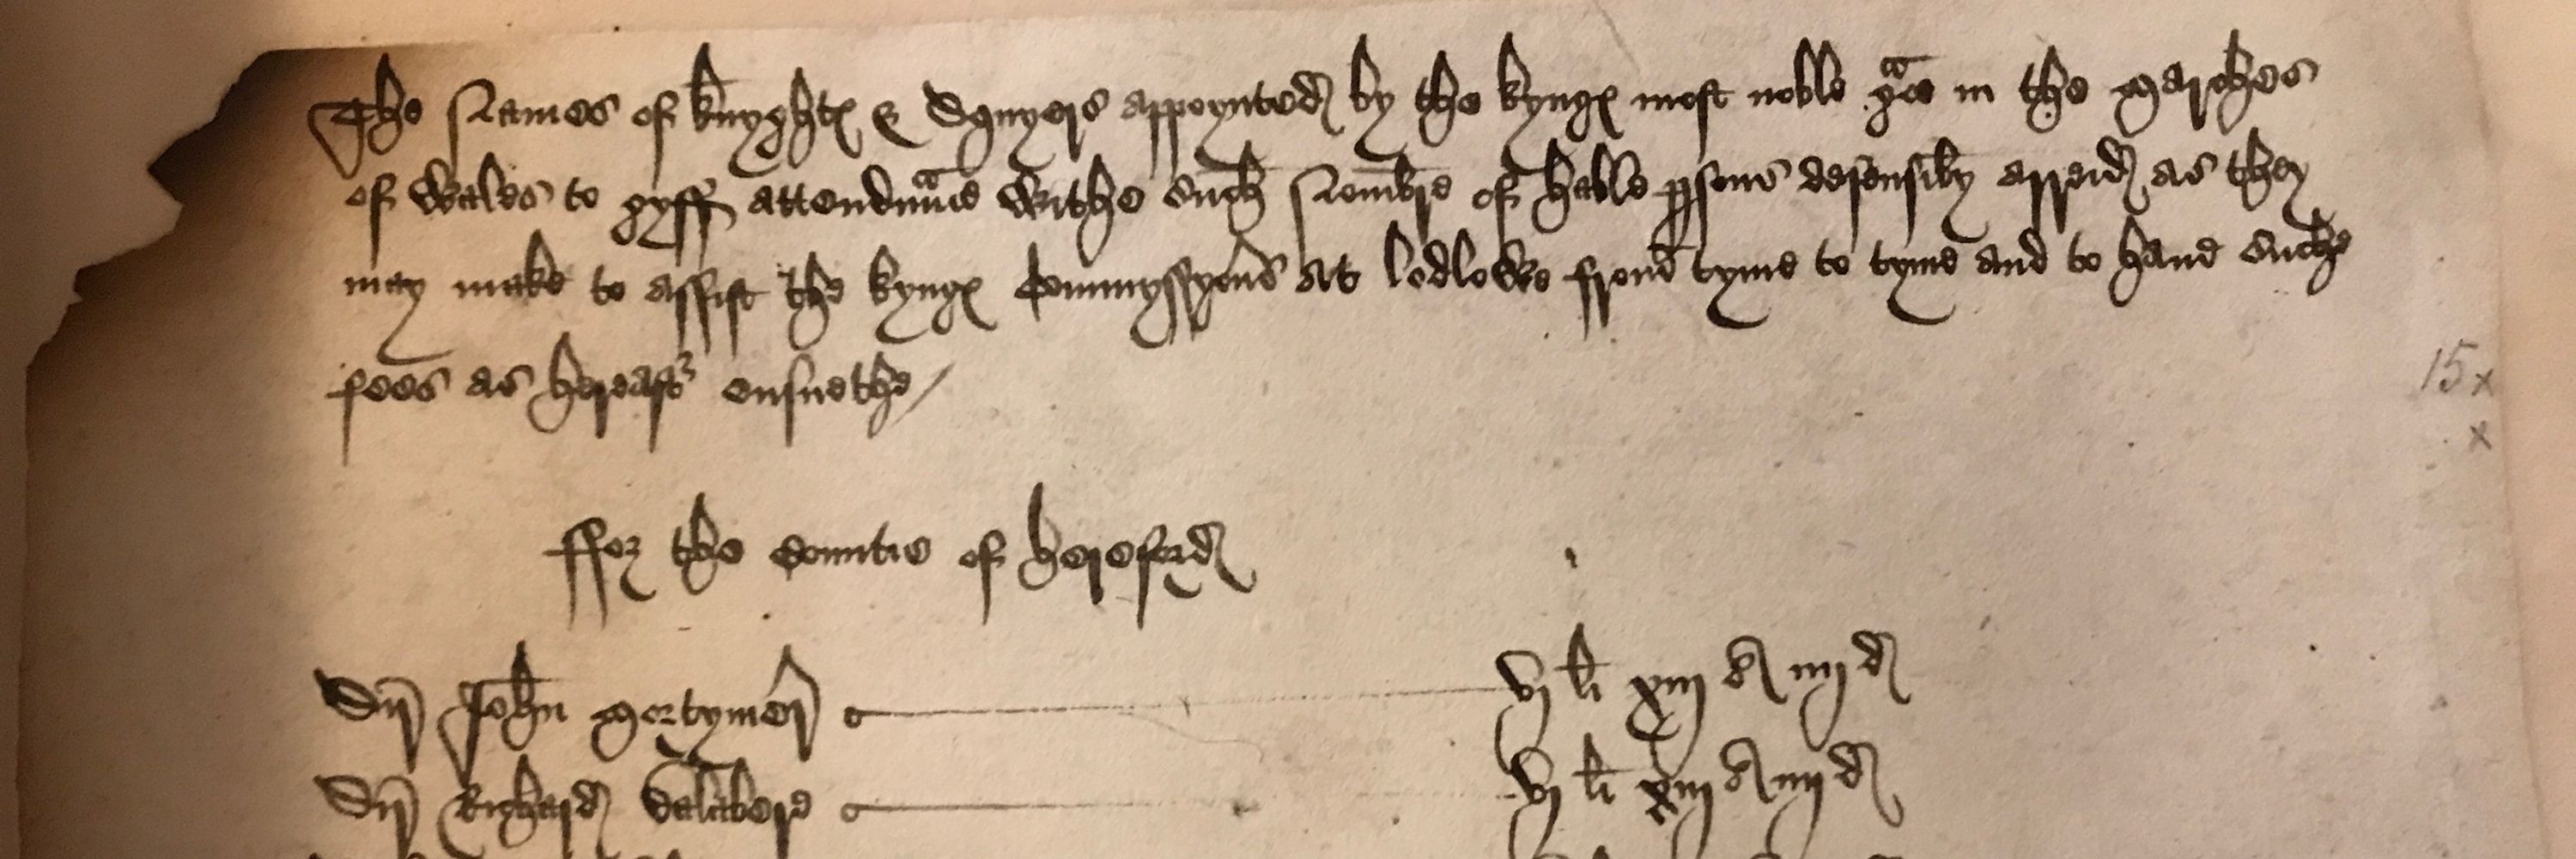 The Names of knyghtes & Squyers appoynted by the kynges most noble grace in the marches
of Wales to gyff attendaunce withe such Nombre of hable persons defensibly arreid as they
may make to assist the kynges Commyssyons at lodlowe from tyme to tyme and to haue suche
fees as hereafter ensuethe /
15 x
x
ffor the countie of hereford
Sir John mortymer vj li xiij s iiij d
Sir Richard Dalabere vj li xiij s iiij d